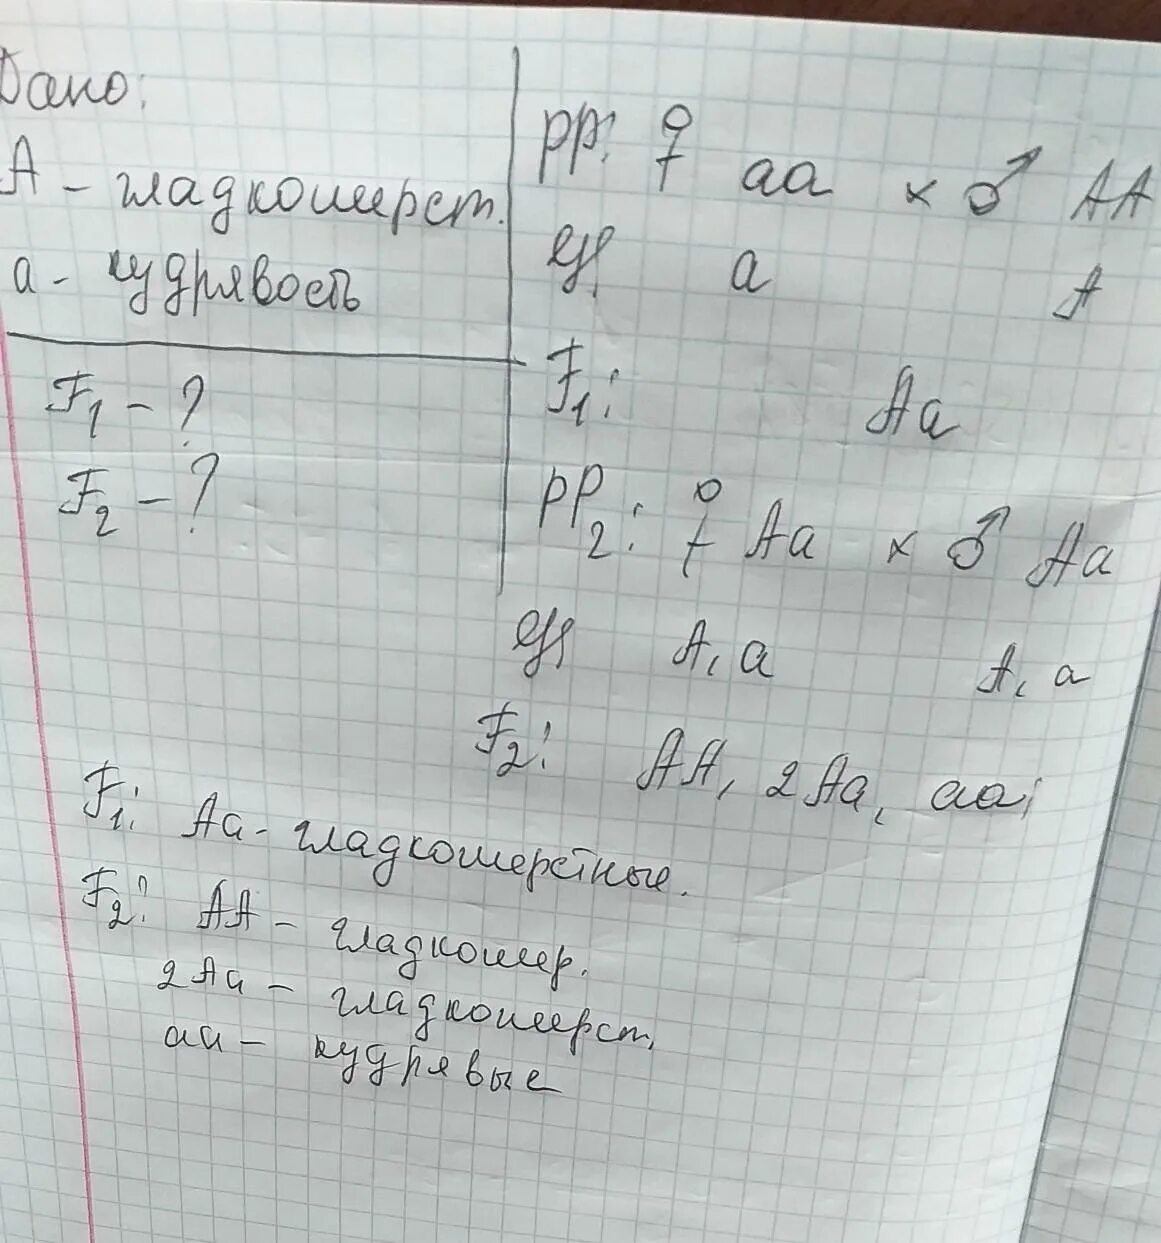 Дано:
А - гладкошерст.
а - кудрявость
F1 - ?
F2 - ?
PP: ♀ аа × ♂ АА
G: а А
F1: Аа
PP2: ♀ Аа × ♂ Аа
G: А, а А, а
F2: АА, 2Аа, аа;
F1: Аа - гладкошерстные.
F2: АА - гладкошер.
2Аа - гладкошерст.
аа - кудрявые